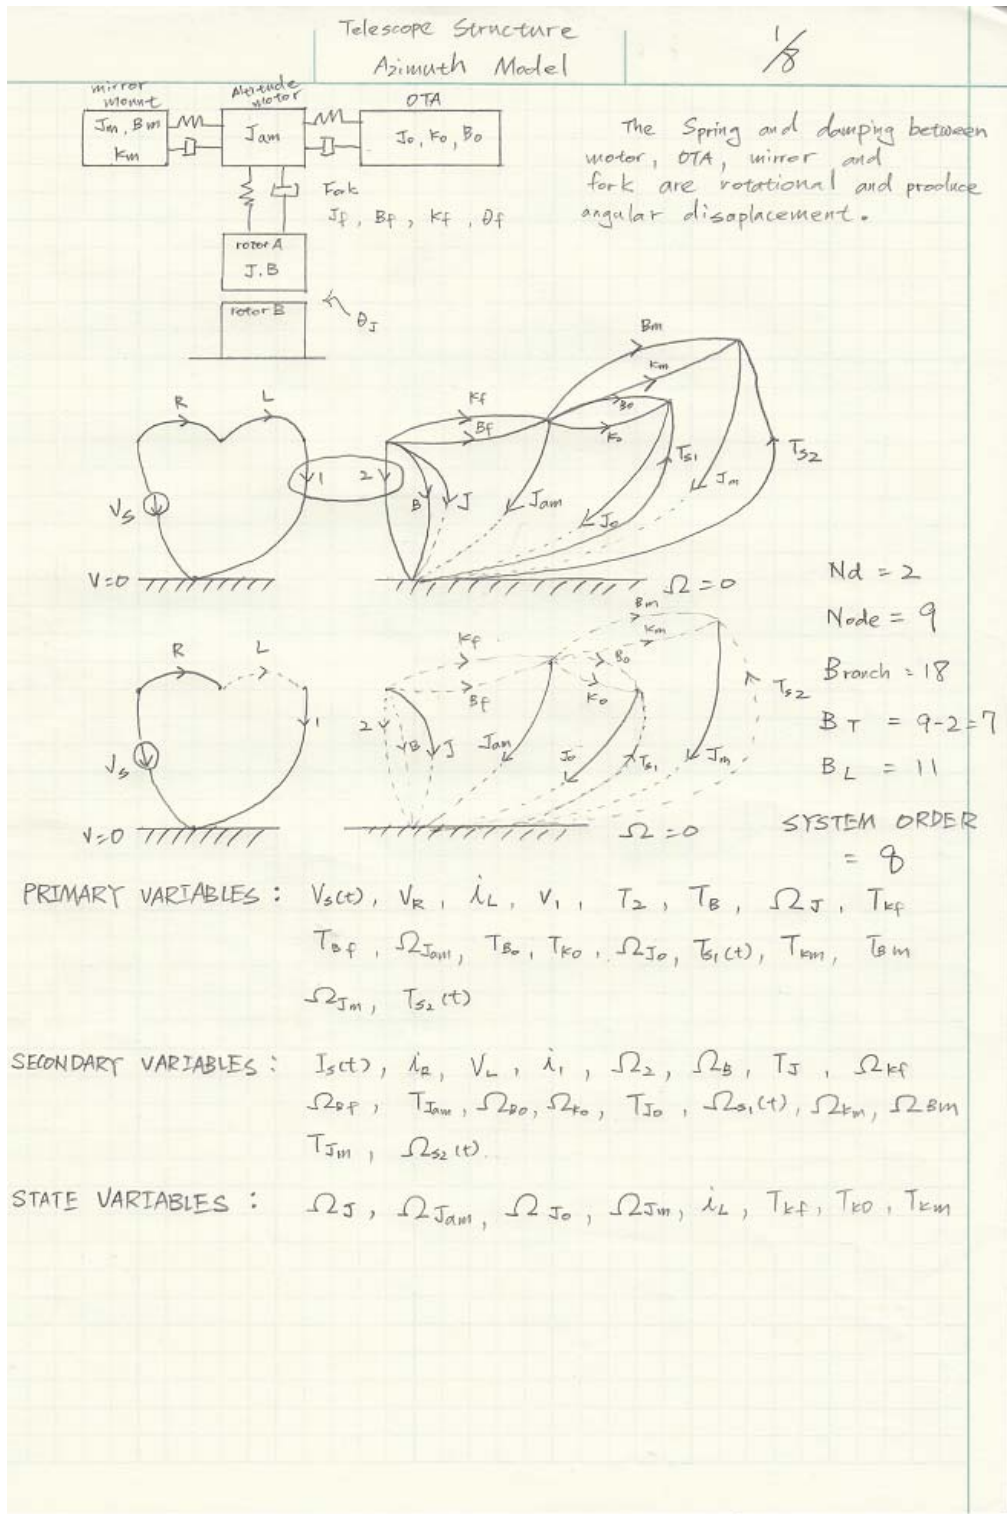 Telescope Structure
Azimuth Model
1/8
mirror mount
Jm, Bm
Km
Altitude motor
Jam
OTA
Jo, Ko, Bo
The Spring and damping between
motor, OTA, mirror and
fork are rotational and produce
angular disoplacement.
Fork
Jf, Bf, Kf, θf
rotor A
J.B
rotor B
θJ
Bm
Km
R
L
Kf
Bo
Bf
Ko
Ts1
Ts2
1
2
B
J
Jam
Jo
Jm
Vs
V=0
Ω=0
Nd = 2
Node = 9
Branch = 18
BT = 9-2=7
BL = 11
SYSTEM ORDER
= 8
Bm
R
L
Kf
Km
Bo
Bf
Ko
Ts2
1
2
B
J
Jam
Jo
Ts1
Jm
Vs
V=0
Ω=0
PRIMARY VARIABLES : Vs(t), VR, iL, V1, T2, TB, ΩJ, TKf
TBf, ΩJam, TBo, TKo, ΩJo, Ts1(t), TKm, TBm
ΩJm, Ts2(t)
SECONDARY VARIABLES : Is(t), iR, VL, i1, Ω2, ΩB, TJ, ΩKf
ΩBf, TJam, ΩBo, ΩKo, TJo, Ωs1(t), ΩKm, ΩBm
TJm, Ωs2(t).
STATE VARIABLES : ΩJ, ΩJam, ΩJo, ΩJm, iL, TKf, TKO, TKm